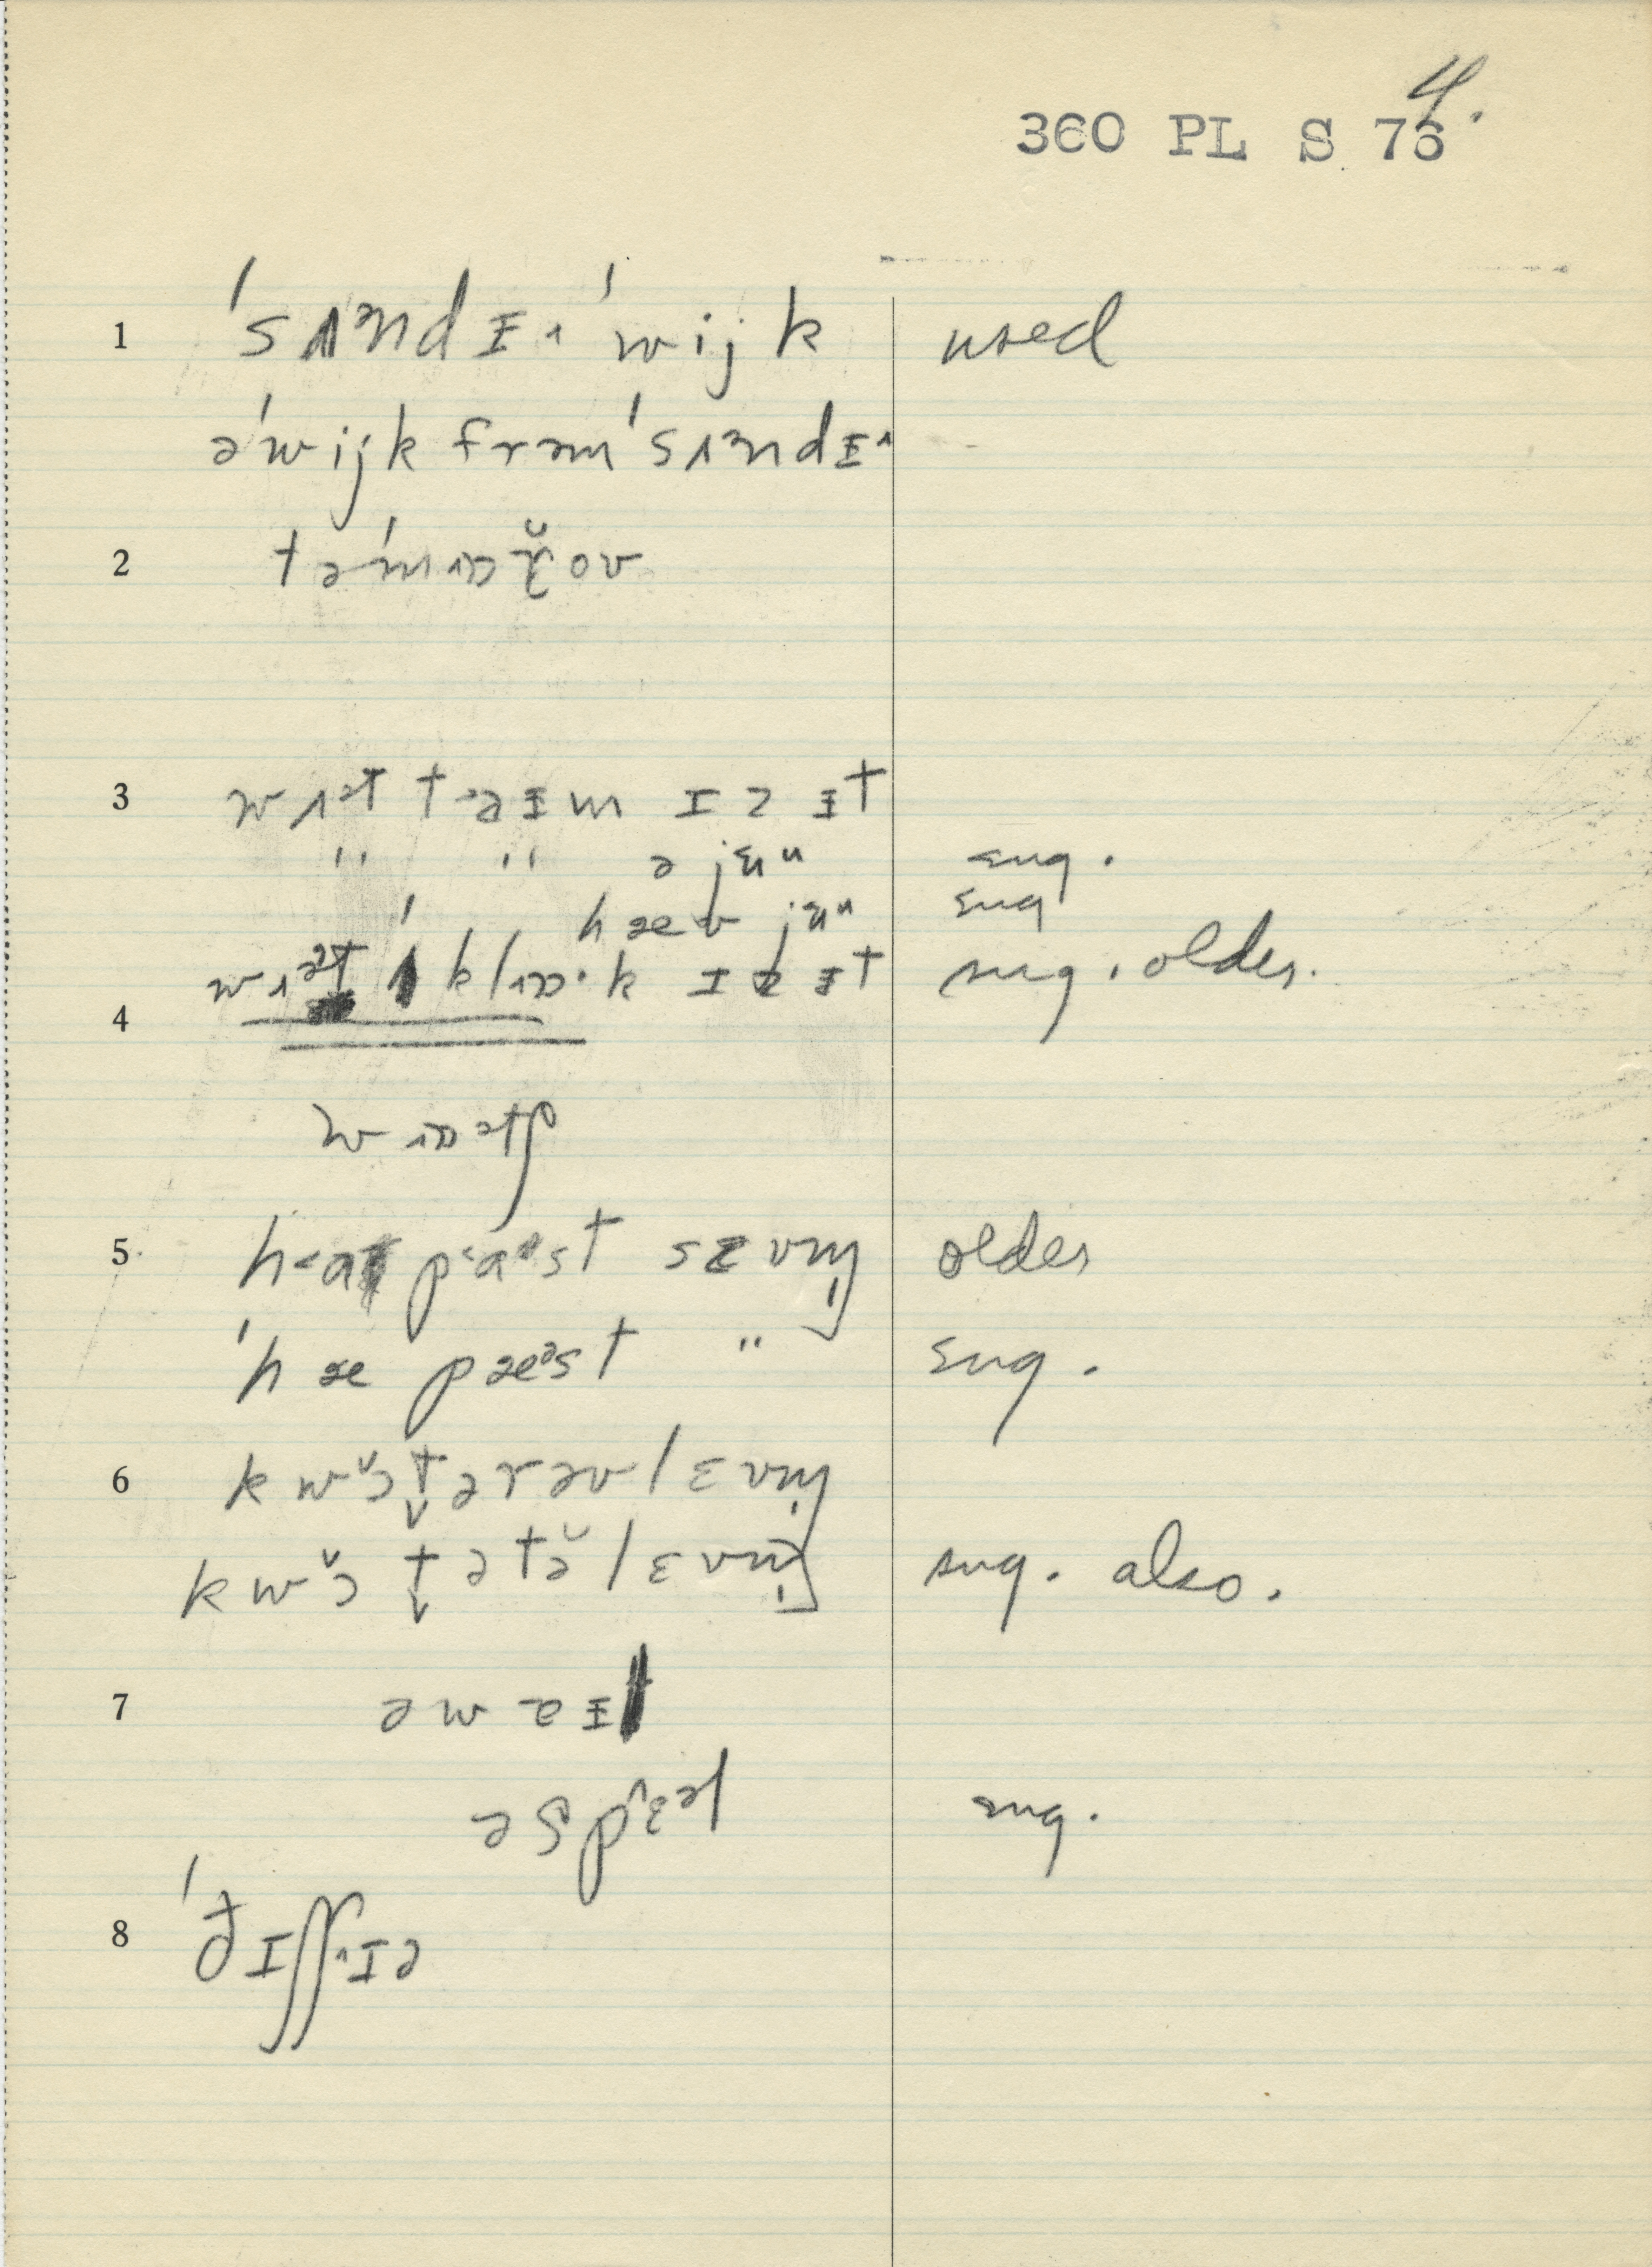 4.
360 PL S 76
1 ˈsʌᵊndɪ˄ ˈwijk used
əˈwijk frəmˈsʌᵊndɪ˄
2 təˈmɒr̆ov
3 wʌᵊt taɪm ɪz ɪt
" " ə jɛu sug.
hæv jɛu sug
4 wʌᵊt klɒ·k ɪz ɪt sug. older.
wɒᵊtʃ
5 ha pa·st sɛvm̩ older
ˈhæ pæᵊst " sug.
6 kwɔ̆t̬ərəvlɛvm̩
kwɔ̆t̬ətə̆lɛvm̩ sug. also.
7 əwaɪl
əspɛᵊl sug.
8 ˈðɪʃʃɪə